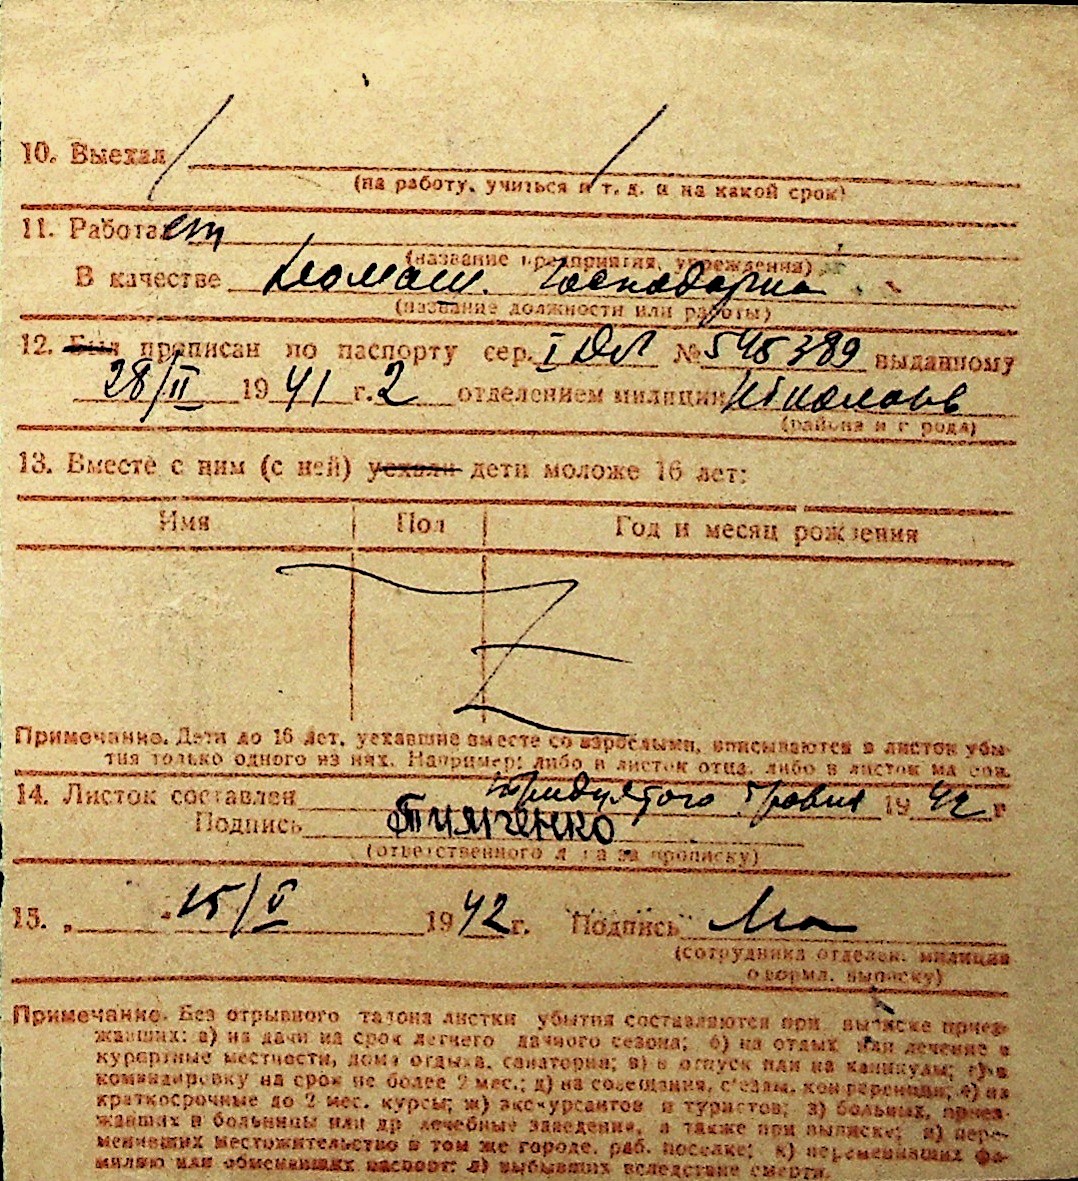 10. Выехал
(на работу, учиться и т. д. и на какой срок)
11. Работает
(название предприятия, учреждения)
В качестве домаш. господарка
(название должности или работы)
12. Был прописан по паспорту сер. I ДЛ № 545389 выданному
28/II 1941 г. 2 отделением милиции
(района и города)
13. Вместе с ним (с ней) уехали дети моложе 16 лет:
Имя Пол Год и месяц рождения
Примечание. Дети до 16 лет, уехавшие вместе со взрослыми, вписываются в листок убы-
тия только одного из них. Например: либо в листок отца, либо в листок матери.
14. Листок составлен тридцятого травня 1942 г
Подпись Тимченко
(ответственного лица за прописку)
15. „ 15/V 1942 г. Подпись
(сотрудника отделен. милиции
оформл. выписку)
Примечание. Без отрывного талона листки убытия составляются при выписке приез-
жавших: а) на дачи на срок летнего дачного сезона; б) на отдых или лечение в
курортные местности, дома отдыха, санатории; в) в отпуск или на каникулы; г) в
командировку на срок не более 2 мес.; д) на совещания, съезды, конференции; е) на
краткосрочные до 2 мес. курсы; ж) экскурсантов и туристов; з) больных, приез-
жавших в больницы или др лечебные заведения, а также при выписке; и) пере-
менивших местожительство в том же городе, раб. поселке; к) переменивших фа-
милию или обменявших паспорт; л) выбывших вследствие смерти.